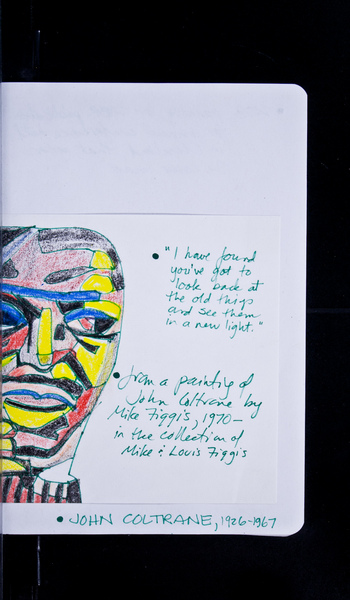 • "I have found
you've got to
look back at
the old thigs
and see them
in a new light."
• from a paintig of
John Coltrane by
Mike Figgis, 1970—
in the collection of
Mike & Louis Figgis
• JOHN COLTRANE, 1926-1967